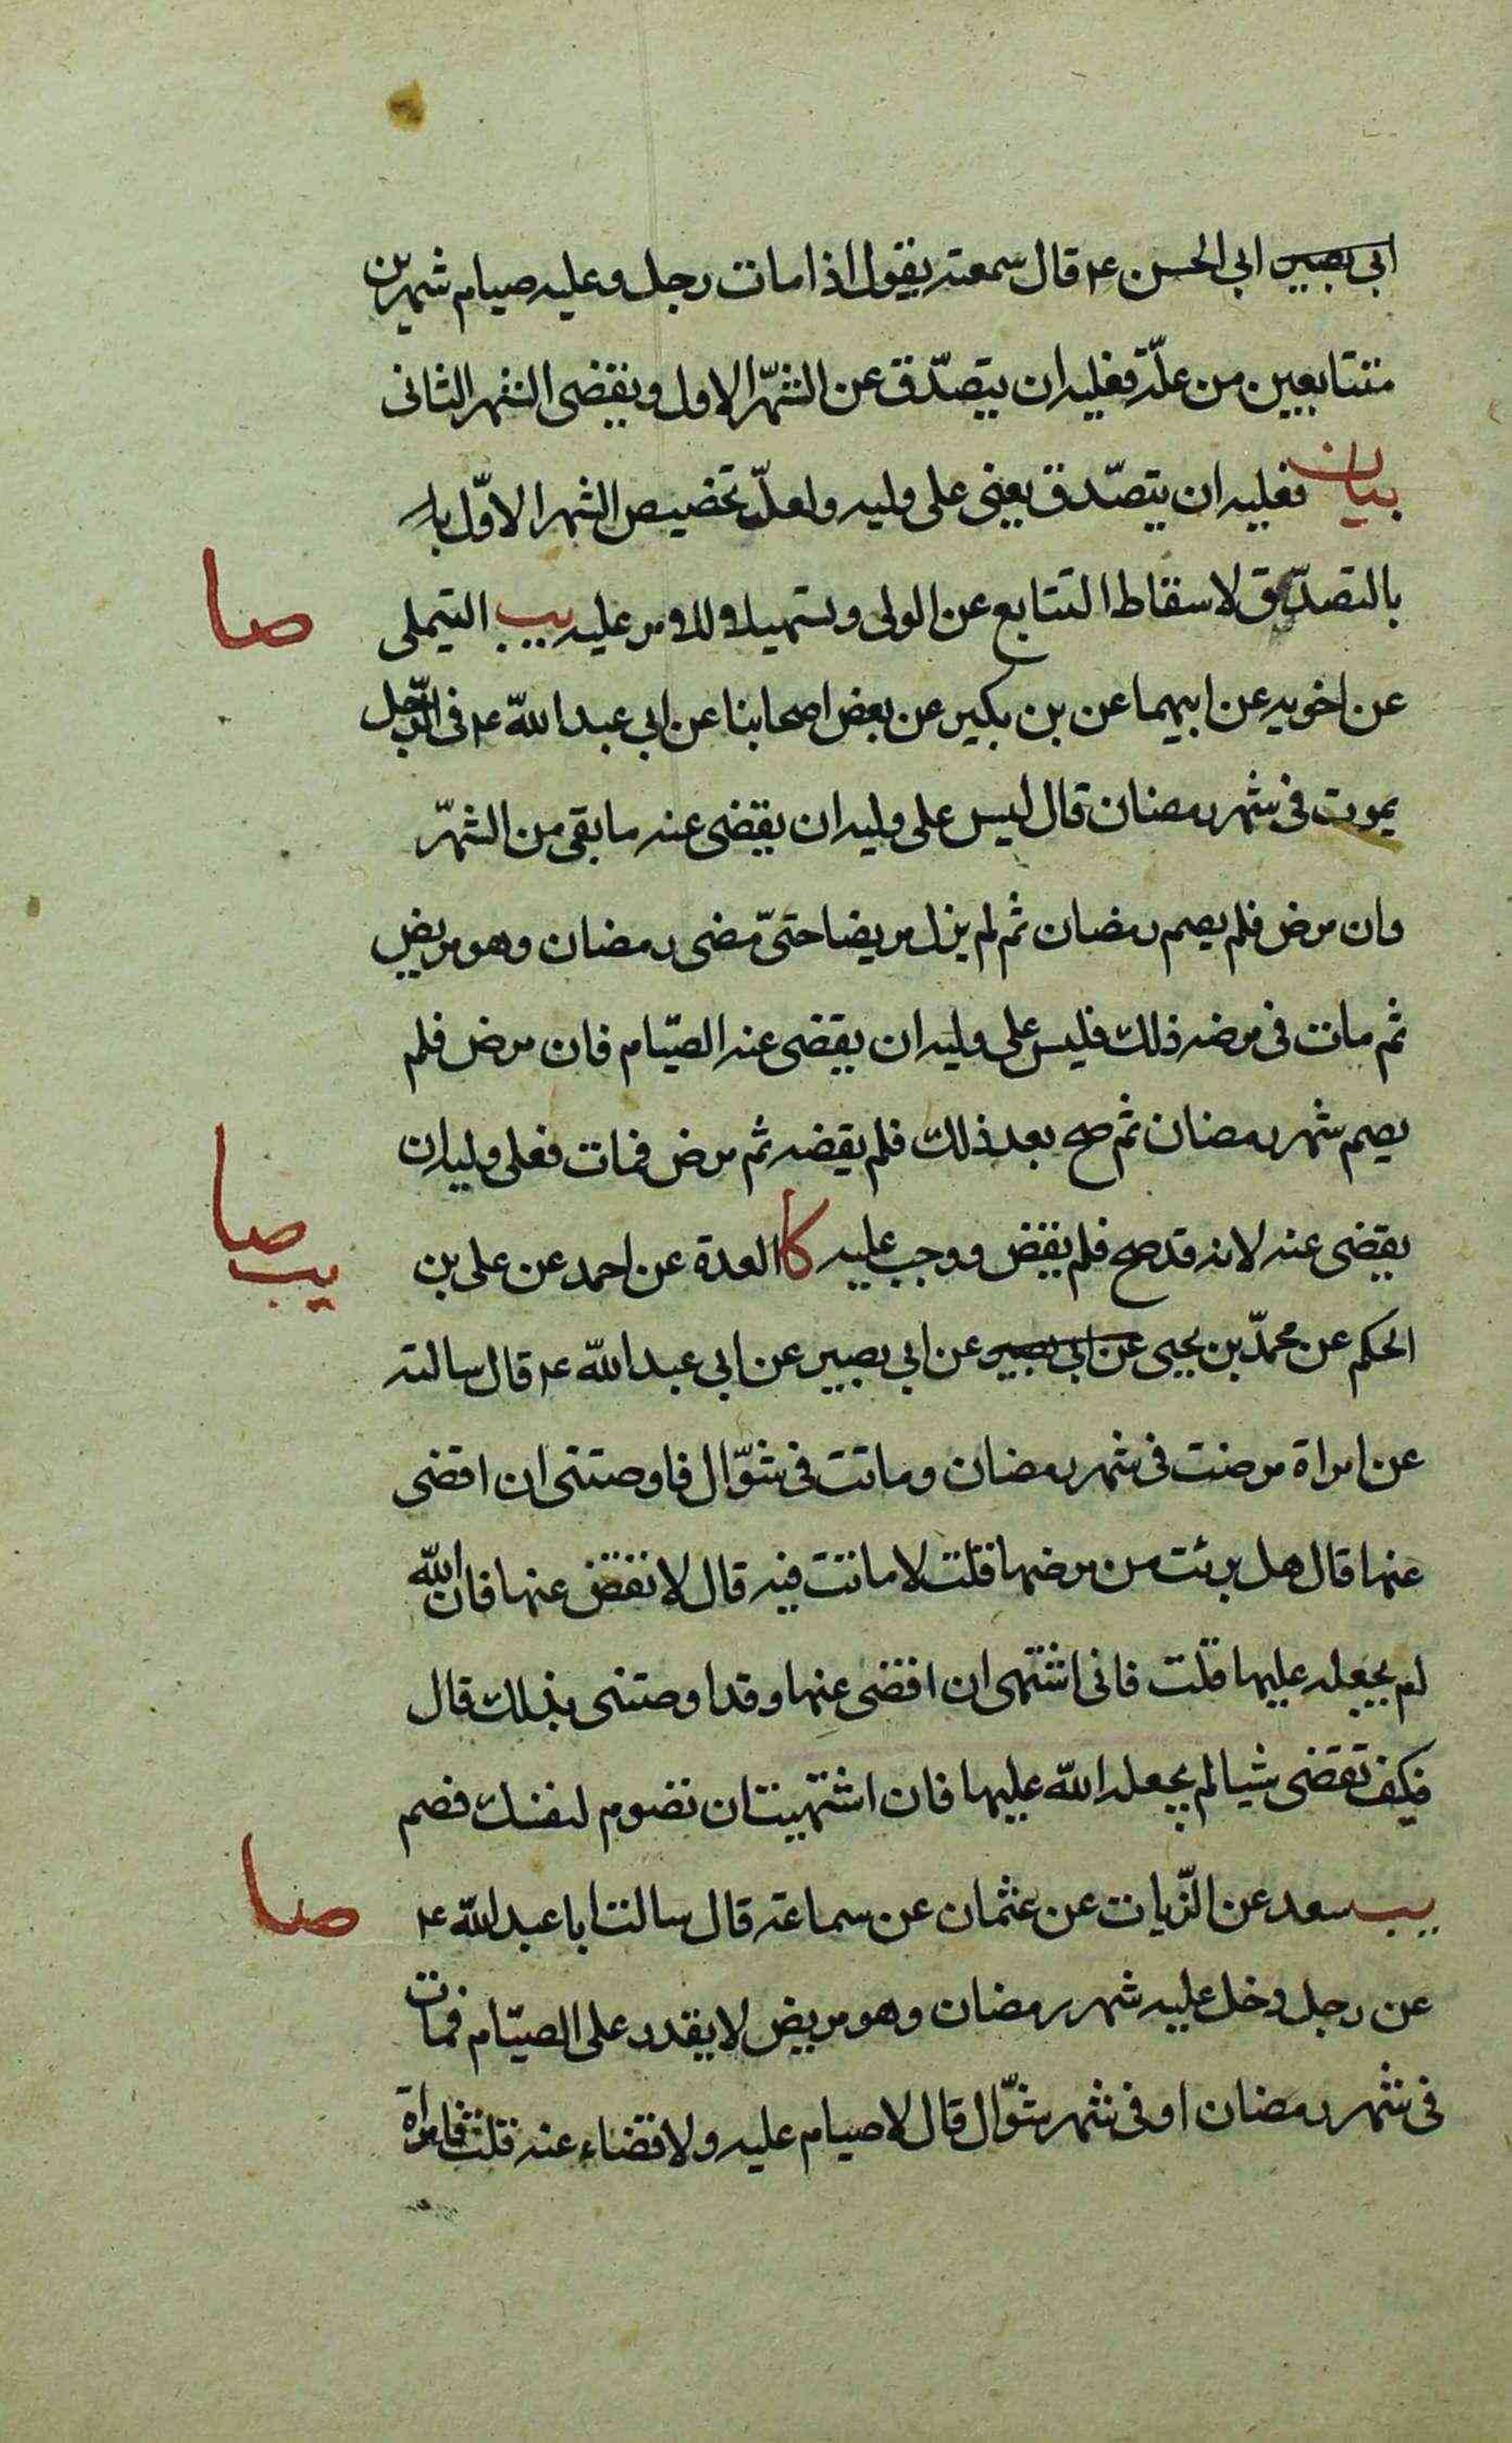 ابی بصیر ابی الحسن ع قال سمعته یقول اذا مات رجل وعلیه صیام شهرین
متتابعین من علّة فعلیه ان یتصدّق عن الشهر الاول ویقضی الشهر الثانی
بیان فعلیه ان یتصدّق یعنی علی ولیه ولعلّ تخصیص الشهر الاوّل بال
بالتصدّق لاسقاط التتابع عن الولی وتسهیل الامر علیه یب التیملی
صا
عن اخویه عن ابیهما عن بن بکیر عن بعض اصحابنا عن ابی عبد الله ع فی الرّجل
یموت فی شهر رمضان قال لیس علی ولیه ان یقضی عنه ما بقی من الشهر
وان مرض فلم یصم رمضان ثم لم یزل مریضا حتّی مضی رمضان وهو مریض
ثم مات فی مرضه ذلك فلیس علی ولیه ان یقضی عنه الصیّام فان مرض فلم
یصم شهر رمضان ثم صح بعد ذلك فلم یقضه ثم مرض فمات فعلی ولیه ان
یقضی عنه لانه قد صح فلم یقض ووجب علیه کا العدة عن احمد عن علی بن
صا
یب
الحکم عن محمدّ بن یحیی عن ابی بصیر عن ابی بصیر عن ابی عبد الله ع قال سالته
عن امراة مرضت فی شهر رمضان وماتت فی شوّال فاوصتنی ان اقضی
عنها قال هل برئت من مرضها قلت لا ماتت فیه قال لا تقض عنها فان الله
لم یجعله علیها قلت فانی اشتهی ان اقضی عنها وقد اوصتنی بذلك قال
فکیف تقضی شیا لم یجعله الله علیها فان اشتهیت ان تصوم لنفسك فصم
یب سعد عن الزّیات عن عثمان عن سماعة قال سالت ابا عبد الله ع
صا
عن رجل دخل علیه شهر رمضان وهو مریض لا یقدر علی الصیّام فمات
فی شهر رمضان او فی شهر شوّال قال لا صیام علیه ولا قضاء عنه قلت فامراة